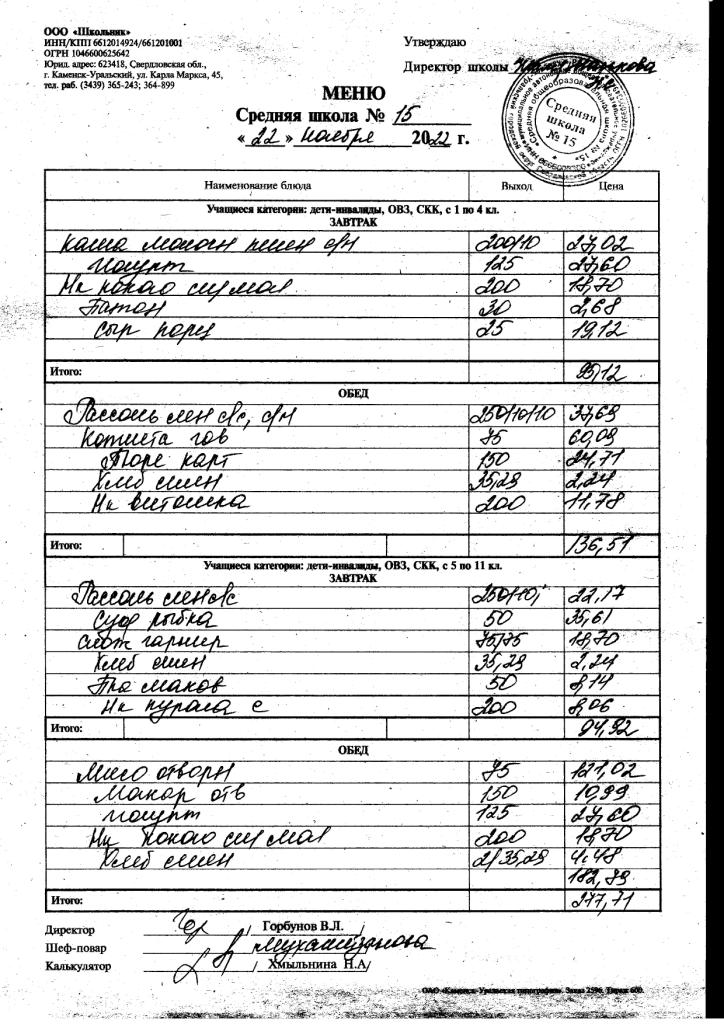 ООО «Школьник»
ИНН/КПП 6612014924/661201001
ОГРН 1046600625642
Юрид. адрес: 623418, Свердловская обл.,
г. Каменск-Уральский, ул. Карла Маркса, 45,
тел. раб. (3439) 365-243; 364-899
Утверждаю
Директор школы
Средняя школа № 15
МЕНЮ
Средняя школа № 15
« 22 » ноября 2022 г.
Наименование блюда Выход Цена
Учащиеся категории: дети-инвалиды, ОВЗ, СКК, с 1 по 4 кл.
ЗАВТРАК
Каша молочн пшен с/м 200/10 27,02
Йогурт 125 27,60
Нк какао с/ц мол 200 18,70
Батон 30 2,68
Сыр порц 25 19,12
Итого: 95,12
ОБЕД
Рассоль лен с/с, с/м 250/10/10 37,69
Котлета гов 75 60,09
Пюре карт 150 24,71
Хлеб смен 35,29 2,24
Нк витошка 200 11,78
Итого: 136,51
Учащиеся категории: дети-инвалиды, ОВЗ, СКК, с 5 по 11 кл.
ЗАВТРАК
Рассоль лен с/с 250/10, 22,17
Суф рыбка 50 35,61
Слож гарнир 75/75 18,70
Хлеб смен 35,29 2,24
Пр маков 50 8,14
Нк с 200 8,06
Итого: 94,92
ОБЕД
Мясо отворн 75 121,02
Макар отв 150 10,99
Йогурт 125 27,60
Нк какао с/ц мол 200 18,70
Хлеб смен 2/35,29 4.48
182,79
Итого: 277,71
Директор / Горбунов В.Л. /
Шеф-повар /
Калькулятор / Хмыльнина Н.А/
ОАО «Каменск-Уральская типография». Заказ 2596. Тираж 600.